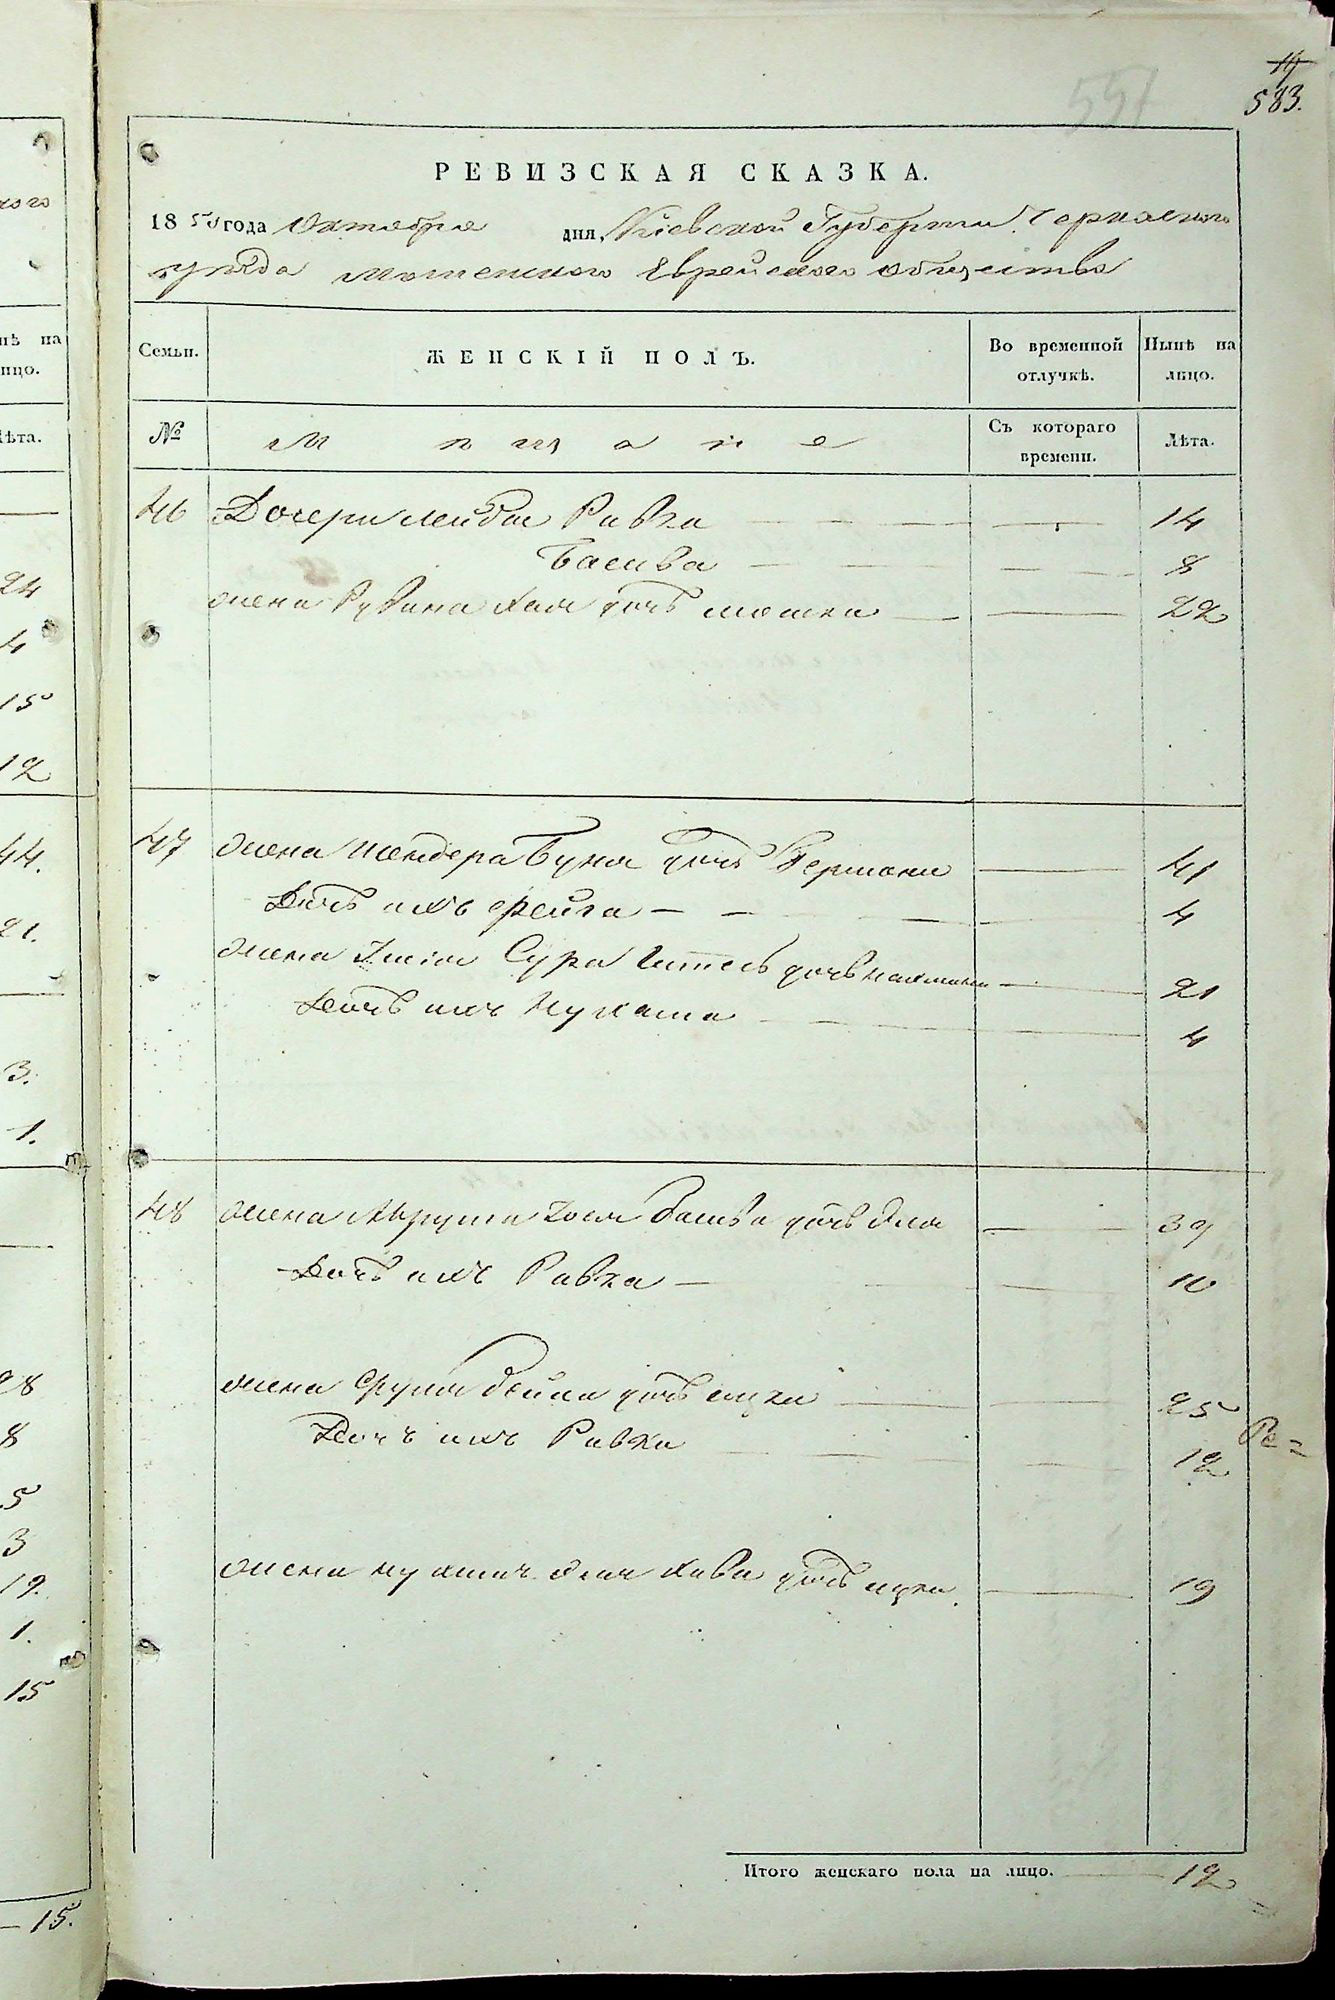 19
583.
551
РЕВИЗСКАЯ СКАЗКА.
1850 года Октября дня, Кіевской Губерніи Черкаского
уѣзда Мошенского Еврейского общества
Семьи. ЖЕНСКІЙ ПОЛЪ. Во временной отлучкѣ. Нынѣ на лицо.
№ Мѣщане Съ котораго времени. Лѣта.
46 Дочери Лейбы Ривка 14
Басива 8
жена Рувина Хая дочь Мошки 22
47 жена Шендера Буня дочь Гершони 41
Дочь ихъ Фейга 4
жена Сура дочь 21
Дочь ихъ 4
48 жена Хося Басива дочь 39
Дочь ихъ Ривка 10
жена Бейла дочь Ицки 25
Дочь ихъ Ривка 12
Ре=
жена Хава дочь Ицка. 19
Итого женскаго пола на лицо. 12
ого
нѣ на
ицо.
Лѣта.
24
4
15
12
44.
21.
3.
1.
28
8
5
3
19.
1.
15
15.